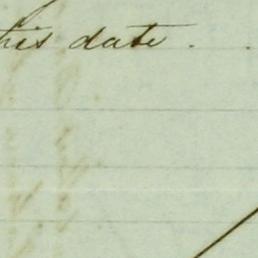 this date.